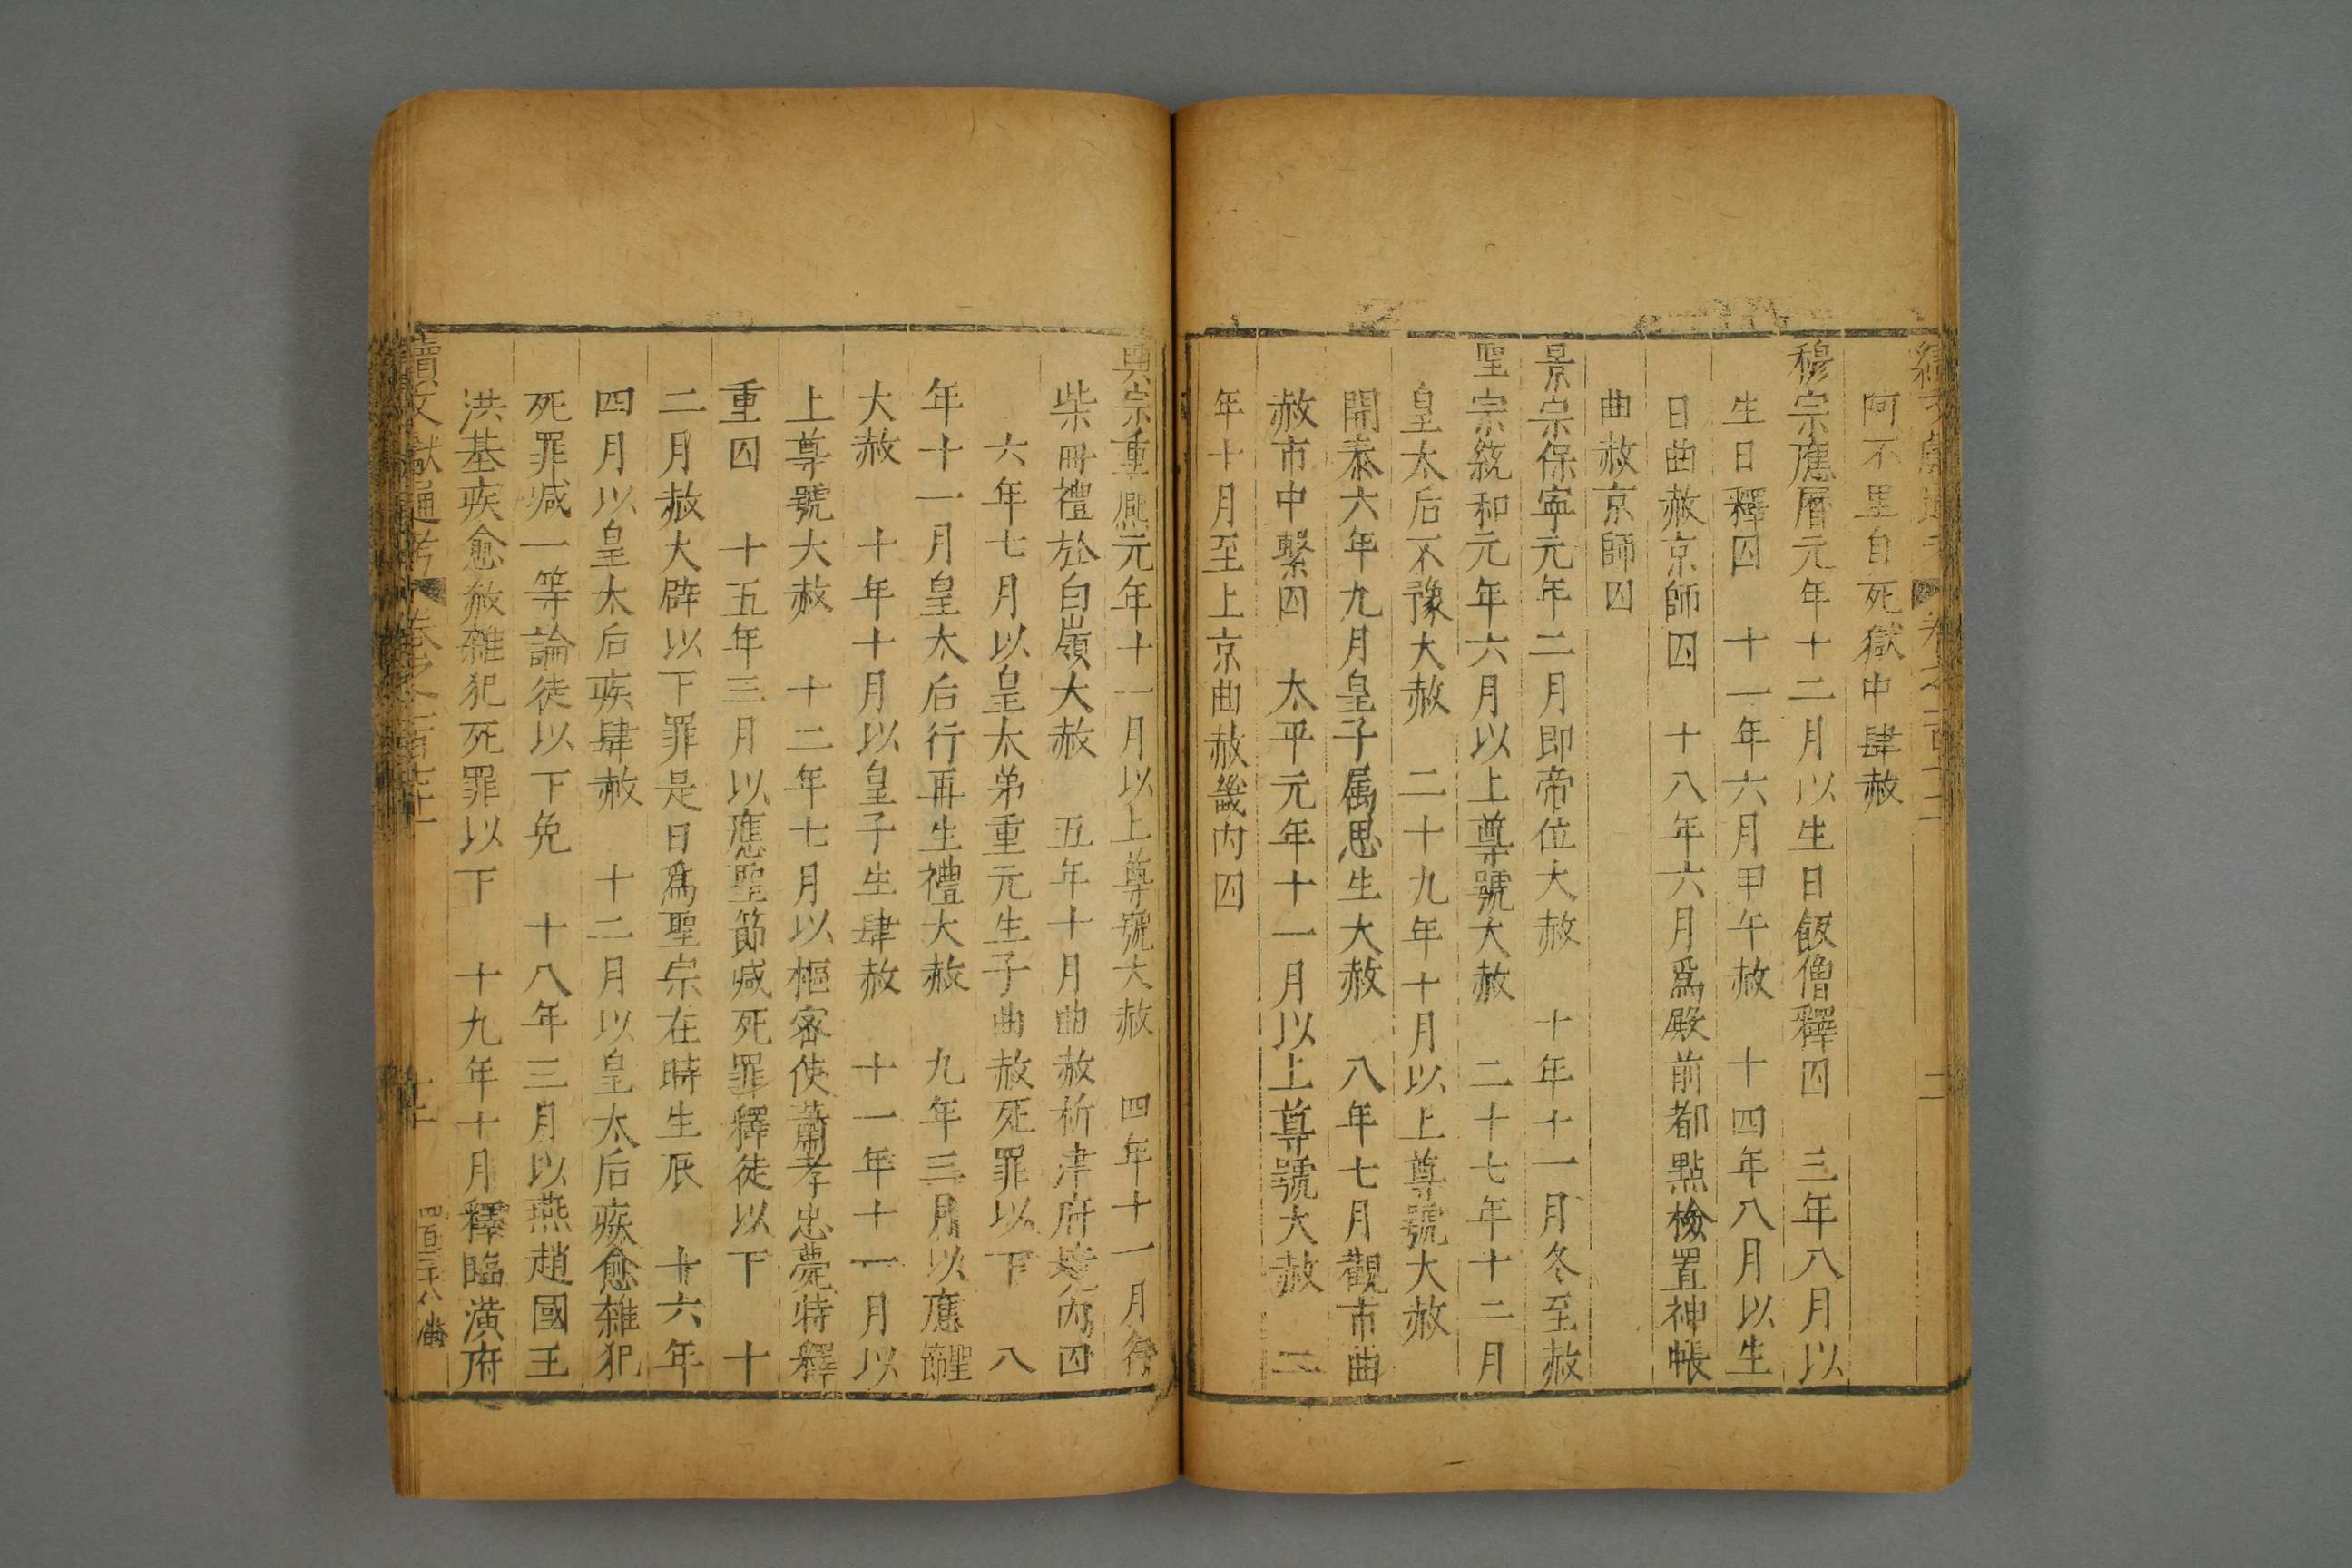 阿不里自死獄中肆赦
穆宗應曆元年十二月以生日飯僧釋囚　三年八月以
生日釋囚　十一年六月甲午赦　十四年八月以生
日曲赦京師囚　十八年六月爲殿前都點檢置神帳
曲赦京師囚
景宗保寧元年二月即帝位大赦　十年十一月冬至赦
聖宗統和元年六月以上尊號大赦　二十七年十二月
皇太后不豫大赦　二十九年十月以上尊號大赦
開泰六年九月皇子属思生大赦　八年七月觀市曲
赦市中繫囚　太平元年十一月以上尊號大赦　二
年十月至上京曲赦畿內囚
興宗重熈元年十一月以上尊號大赦　四年十一月行
柴冊禮於白嶺大赦　五年十月曲赦析津府境內囚
六年七月以皇太弟重元生子曲赦死罪以下　八
年十一月皇太后行再生禮大赦　九年三月以應聖節
大赦　十年十月以皇子生肆赦　十一年十一月以
上尊號大赦　十二年七月以樞密使蕭孝忠薨特釋
重囚　十五年三月以應聖節減死罪釋徒以下　十
二月赦大辟以下罪是日爲聖宗在時生辰　十六年
四月以皇太后疾肆赦　十二月以皇太后疾愈雜犯
死罪減一等論徒以下免　十八年三月以燕趙國王
洪基疾愈赦雜犯死罪以下　十九年十月釋臨潢府
續文獻通考　卷之一百七十